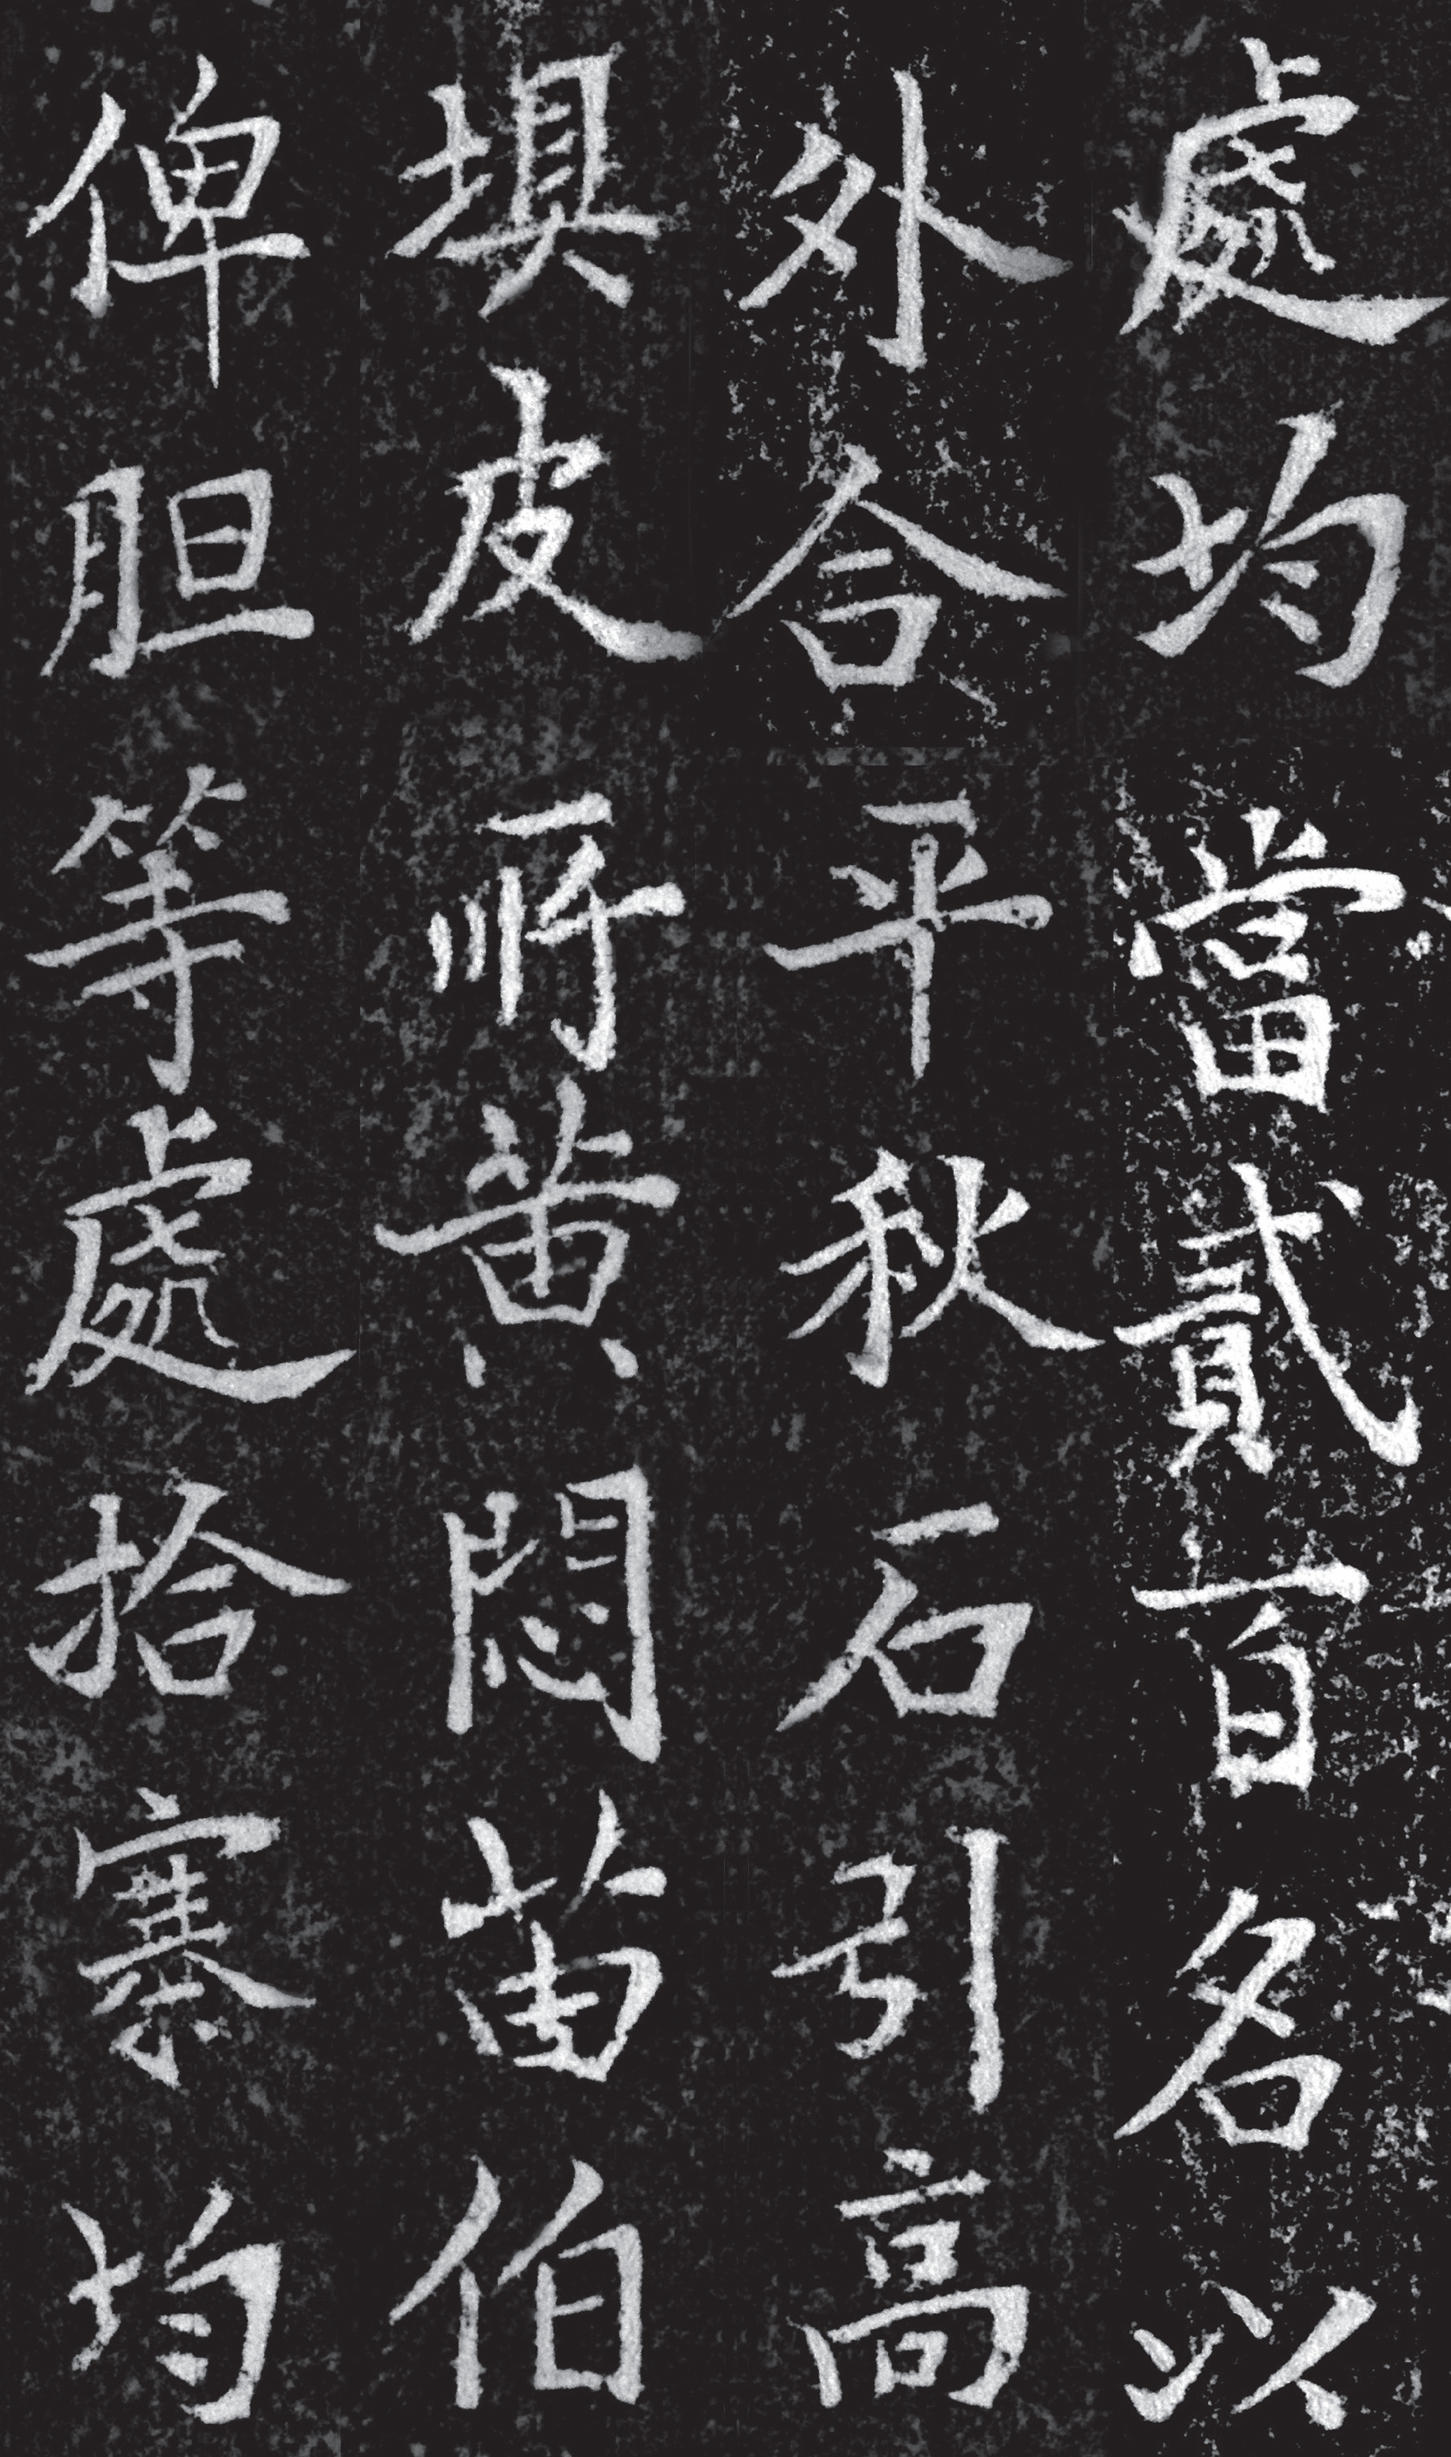 處均當貳百名以
外合平秋石引高
埧皮所黄悶苗伯
俾胆等處拾寨均